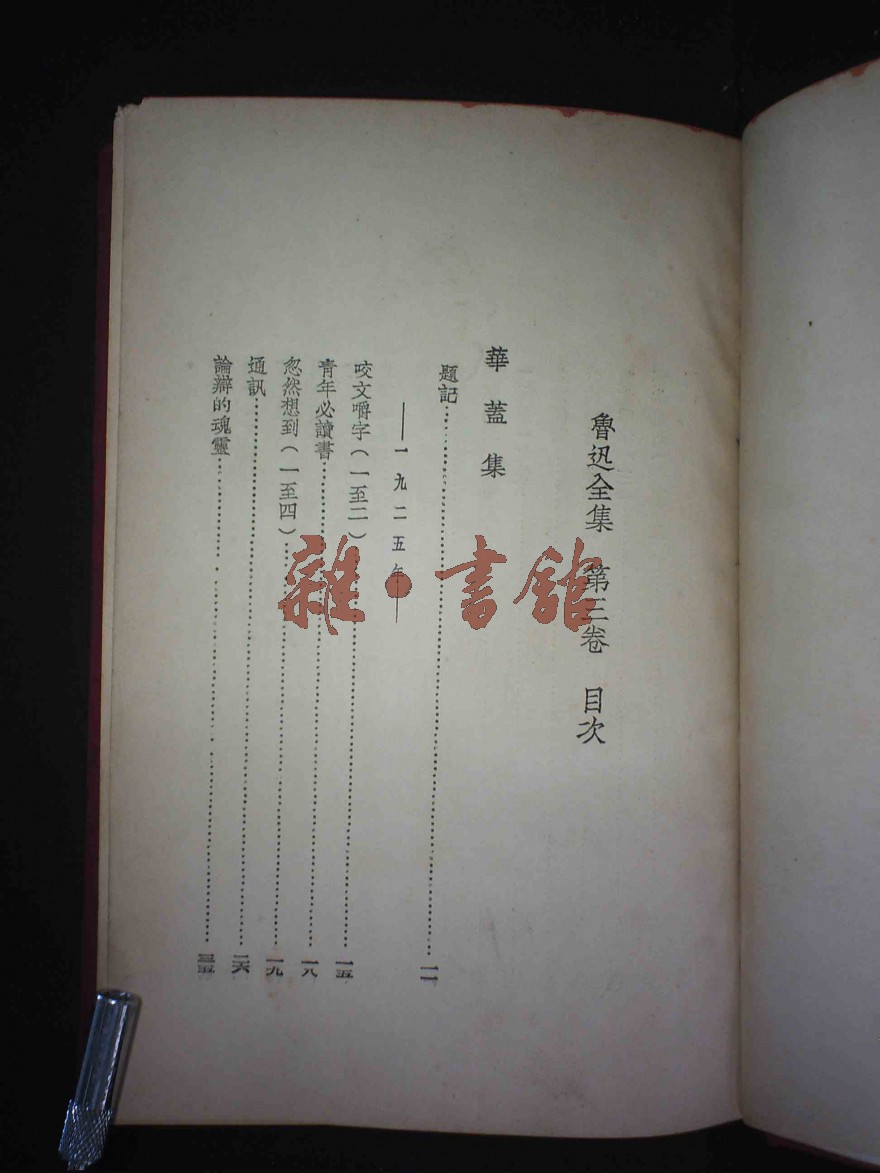 魯迅全集 第三卷 目次
華蓋集
題記…………一一
——一九二五年——
咬文嚼字（一至二）…………一五
青年必讀書…………一八
忽然想到（一至四）…………一九
通訊…………二六
論辯的魂靈…………三五
雜·書館